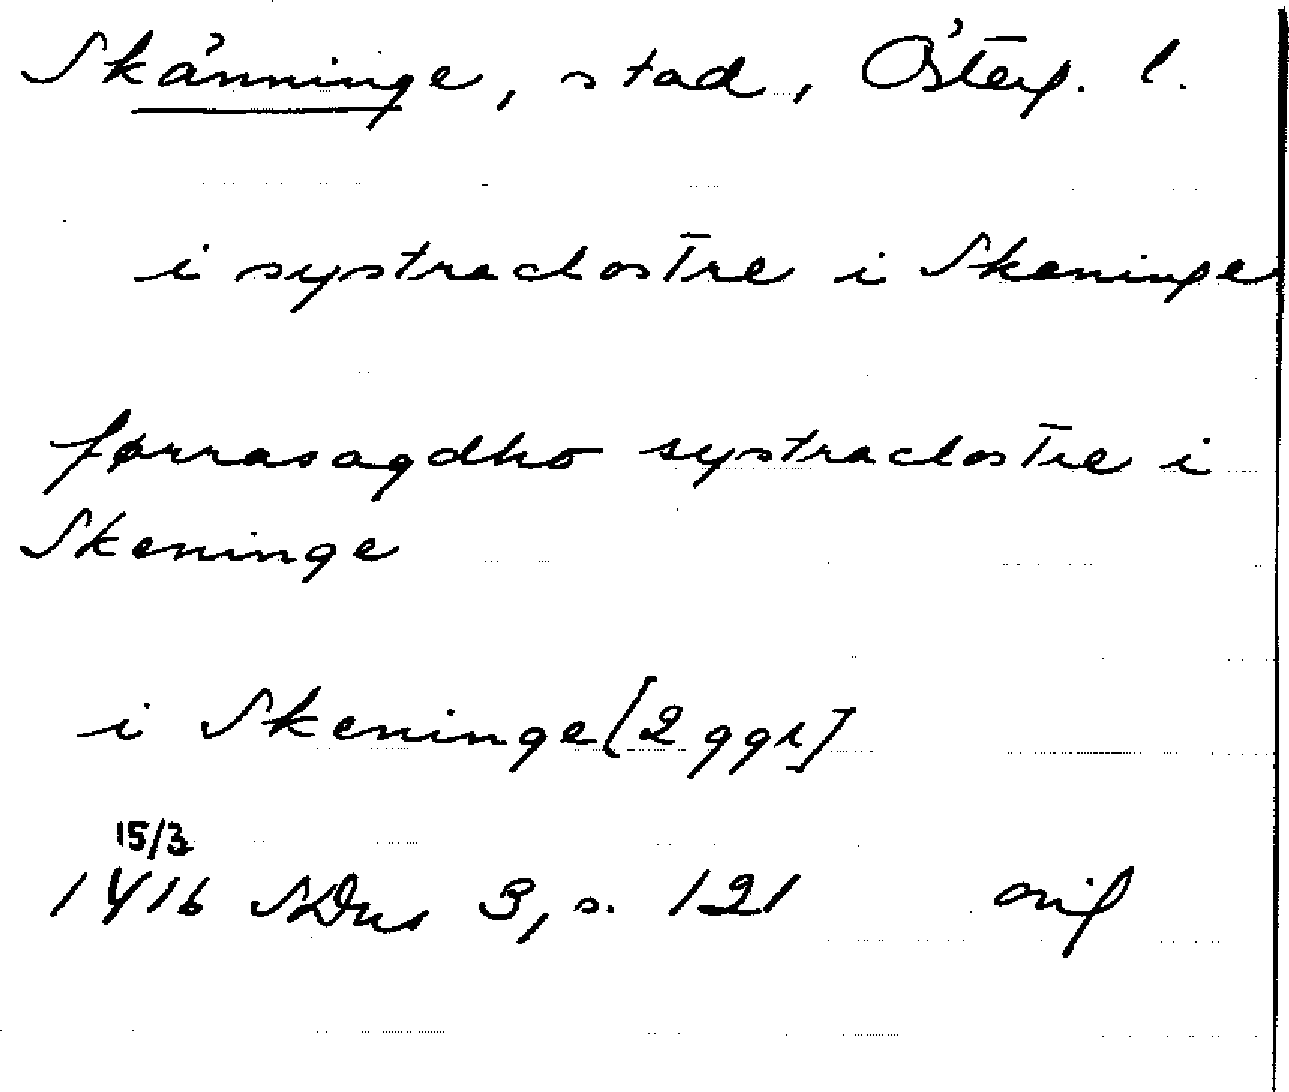 Skänninge, stad, Österg. l.
i systraclostre i Skeninge
førrasagdho systraclostre i
Skeninge
i Skeninge [2 ggr]
15/3
1416 SDns 3, s. 121 orig